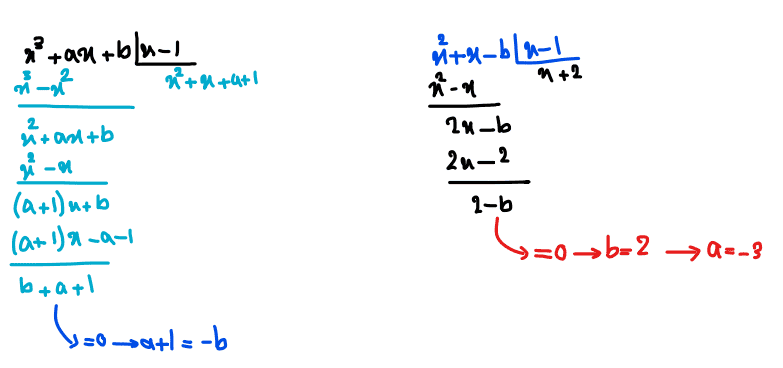 x³ + ax + b | x - 1
x³ - x²
x² + x + a + 1
x² + ax + b
x² - x
(a+1)x + b
(a+1)x - a - 1
b + a + 1
= 0 → a + 1 = -b
x² + x - b | x - 1
x² - x
x + 2
2x - b
2x - 2
2 - b
= 0 → b = 2 → a = -3